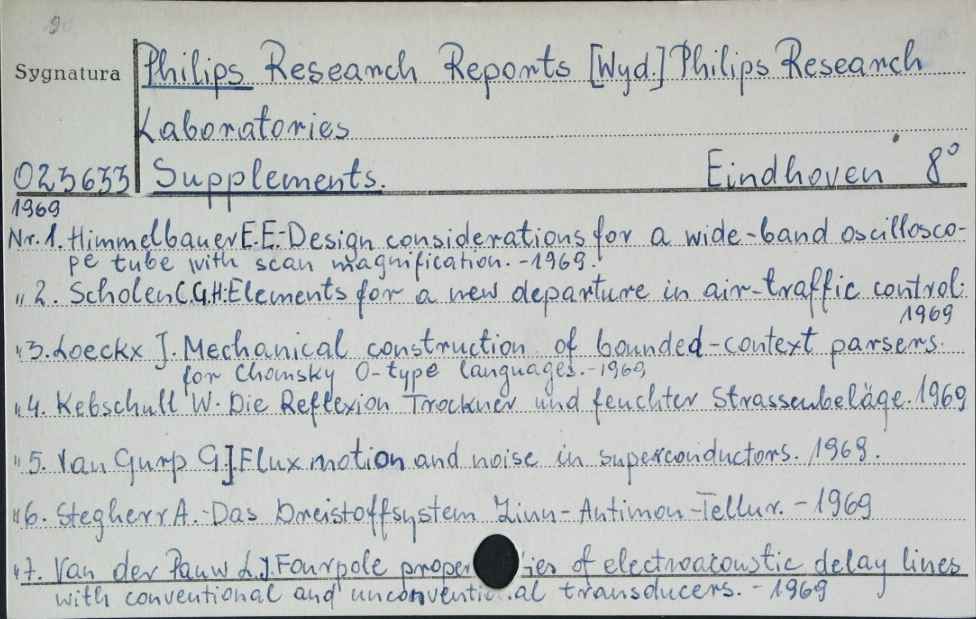 9
Sygnatura Philips Research Reports [Wyd.] Philips Research
Laboratories
023633 Supplements. Eindhoven 8°
1969
Nr. 1. Himmelbauer E.E.-Design considerations for a wide-band oscillosco-
pe tube with scan magnification. - 1969.
" 2. Scholen C.G.H: Elements for a new departure in air-traffic control.
1969
" 3. Loeckx J. Mechanical construction of bounded-context parsers
for Chomsky O-type languages. - 1969
" 4. Kebschull W. Die Reflexion Trockner und feuchter Strassenbeläge. 1969
" 5. Van Gurp G.J Flux motion and noise in superconductors. 1969.
" 6. Stegherr A.-Das Dreistoffsystem Zinn-Antimon-Tellur. - 1969
" 7. Van der Pauw L.J. Fourpole properties of electroacoustic delay lines
with conventional and unconventional transducers. - 1969